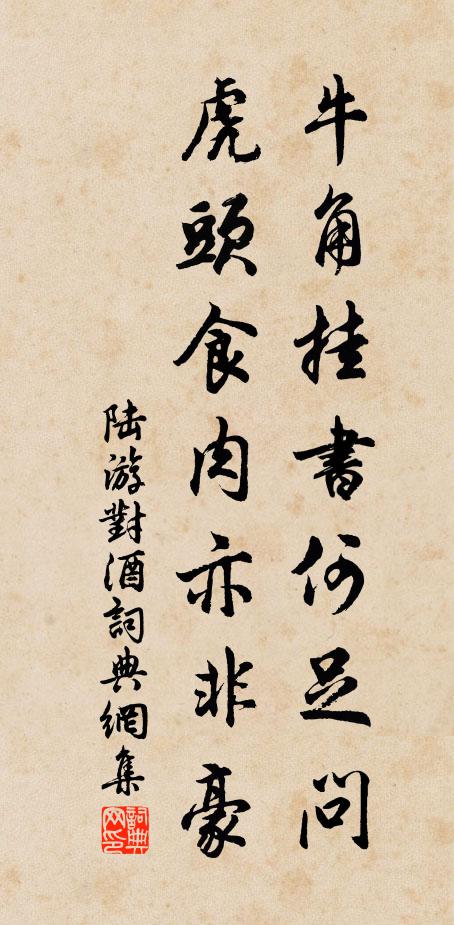 牛角挂書何足問
虎頭食肉亦非豪
陆游對酒詞典網集
詞典网印